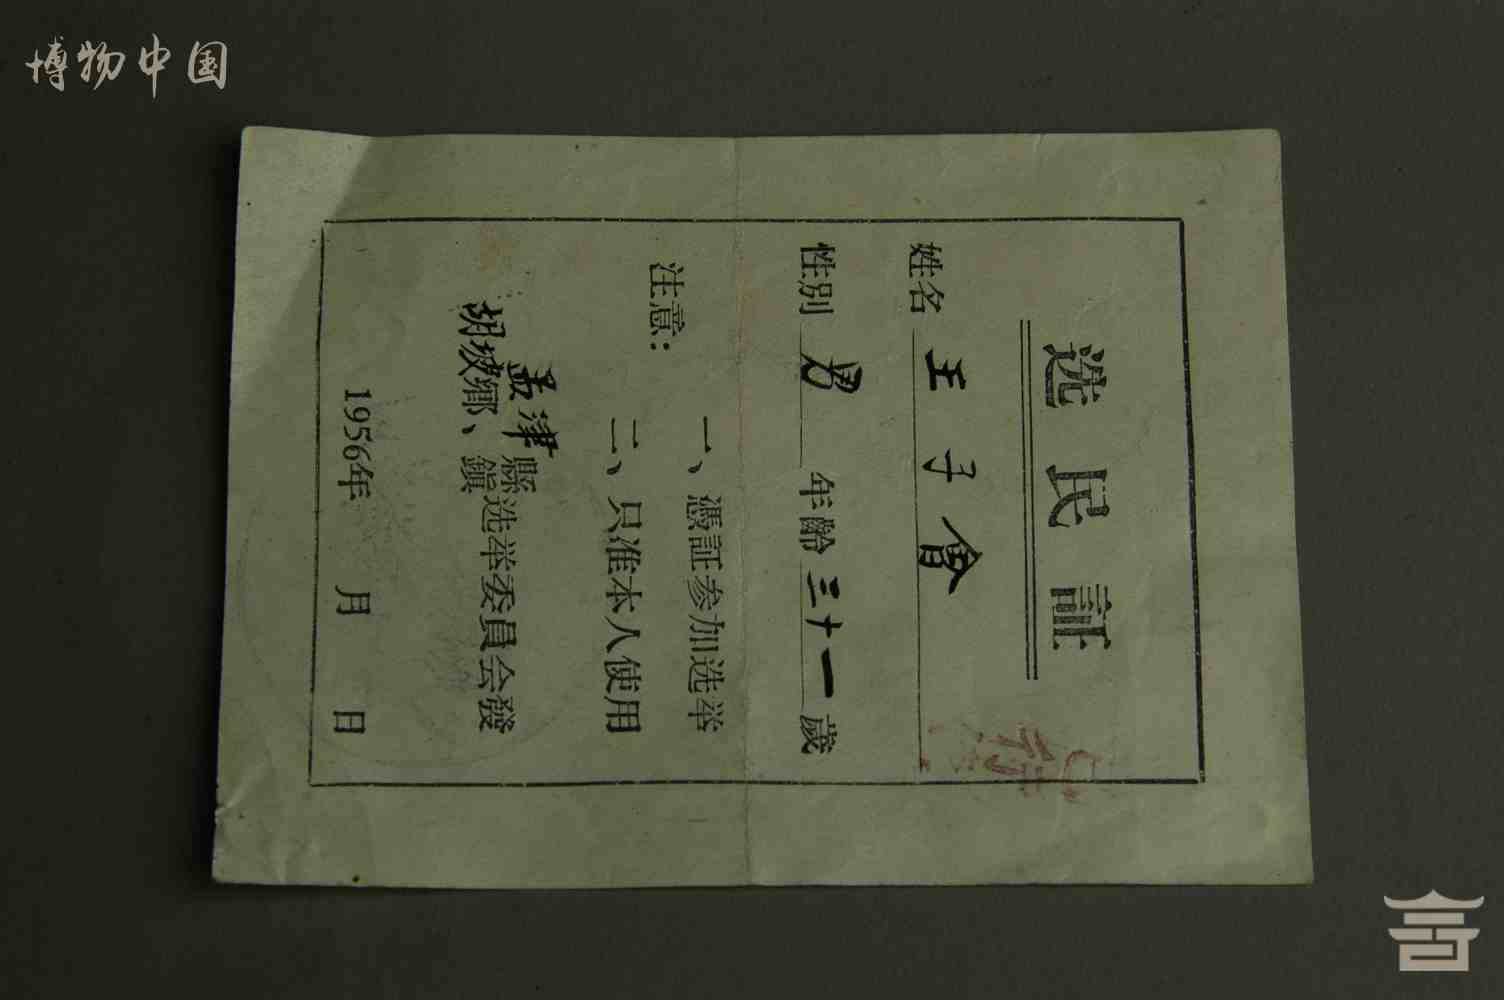 博物中国
选民証
姓名 王子會
性別 男 年齡 三十一 歲
注意：
一、憑証参加选举
二、只准本人使用
孟津縣
胡坡鄉、鎮选举委員会發
1956年 月 日